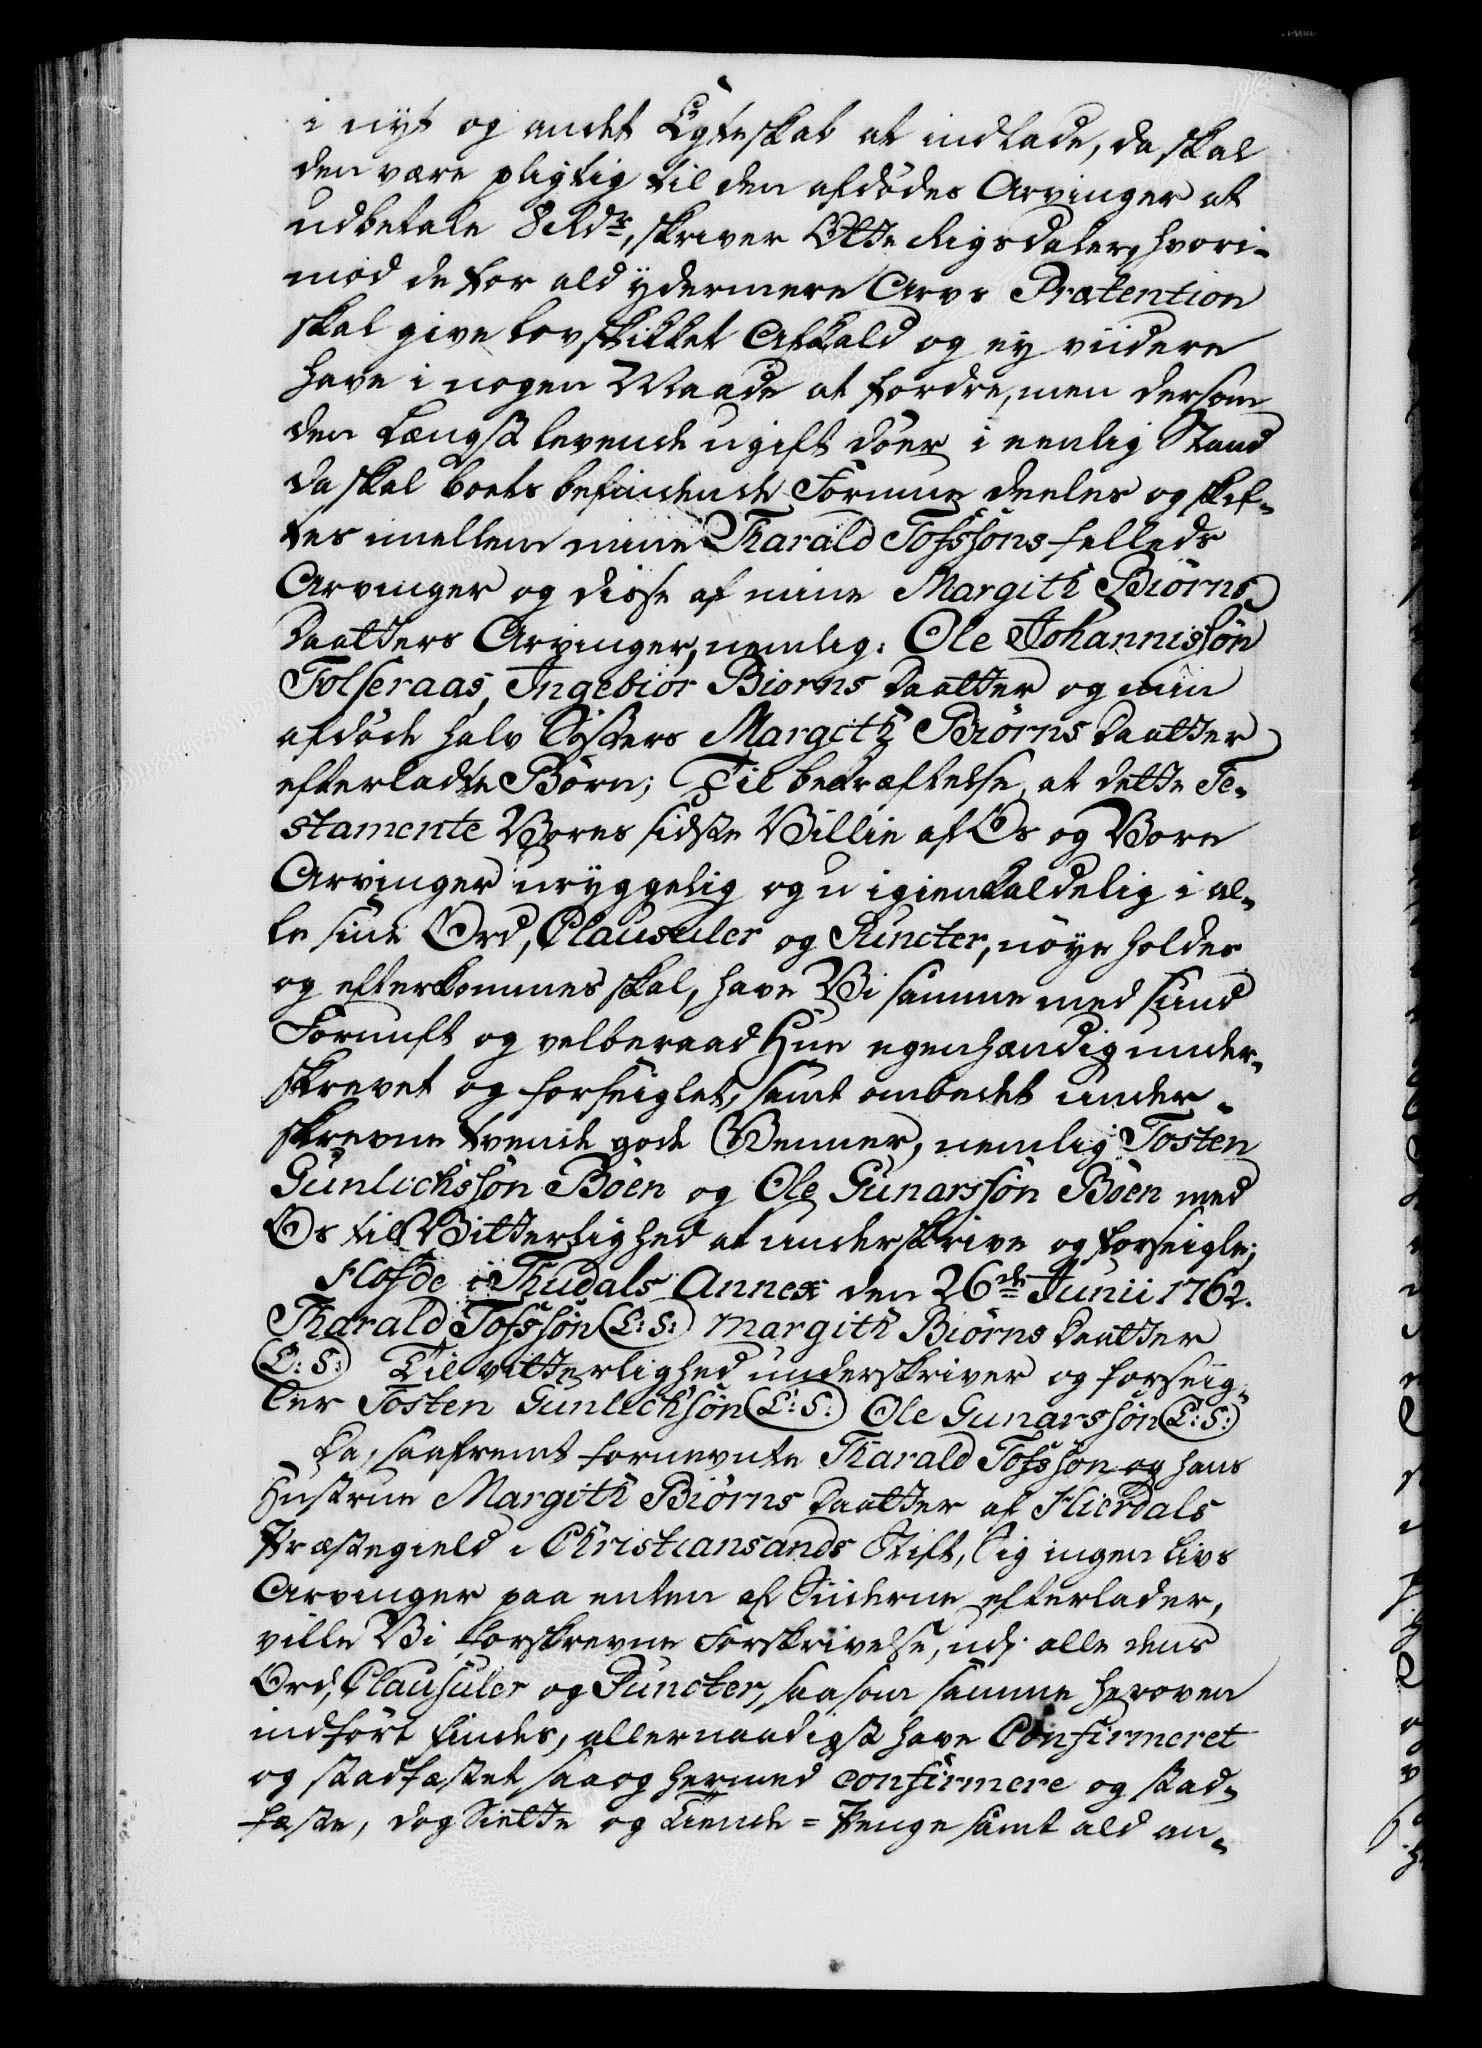 i nyt og andet Egteskab at indlade, da skal
den være pligtig til den afdødes Arvinger at
udbetale 8 Rdr, skriver Otte Rigsdaler, hvori-
mod de for ald ydermere Arvs Prætention
skal give lovskikket Afkald og ey viidere
have i nogen Maade at fordre, men dersom
den længst levende ugift døer i eenlig Stand
da skal boets befindende Formue deeles og skif-
tes imellem mine Tharald Tofssøns fælleds
Arvinger og disse af mine Margith Biørns
Daatters Arvinger, nemlig: Ole Johannissøn
Folseraas, Ingebior Biørns Daatter og min
afdøde halv Søsters Margith Biørns Daatter
efterladte Børn; Til bekræftelse, at dette Te-
stamente Vores sidste Villie af Os og Vore
Arvinger uryggelig og u igienkaldelig i al-
le sine Ord, Clausuler og Puncter, nøye holdes
og efterkommes skal, have Vi samme med sund
Fornuft og velberaad Hue egenhændig under-
skrevet og forseiglet, samt ombedet under-
skrevne tvende gode Venner, nemlig Tosten
Gunlichssøn Bøen og Ole Gunarssøn Bøen med
Os til Vitterlighed at underskrive og forseigle;
Flofde i Thudals Annex den 26de Junii 1762.
Tharald Tofssøn (L:S:) Margith Biørns Daatter
(L:S:) Til vitterlighed underskriver og forseig-
ler Tosten Gunlichsøn (L:S:) Ole Gunarssøn (L:S:)
Da, saafremt fornevnte Tharald Tofssøn og hans
Hustrue Margith Biørns Daatter af Hierdals
Præstegield i Christiansands Stift, Sig ingen Livs
Arvinger paa enten af Siiderne efterlader,
ville Vi forskrevne Forskrivelse, udj alle dens
Ord, Clausuler og Puncter, saasom samme heroven
indført findes, allernaadigst have Confirmeret
og stadfæstet saa og hermed confirmere og stad-
fæste, dog Siette og Tiende = Penge samt ald an-